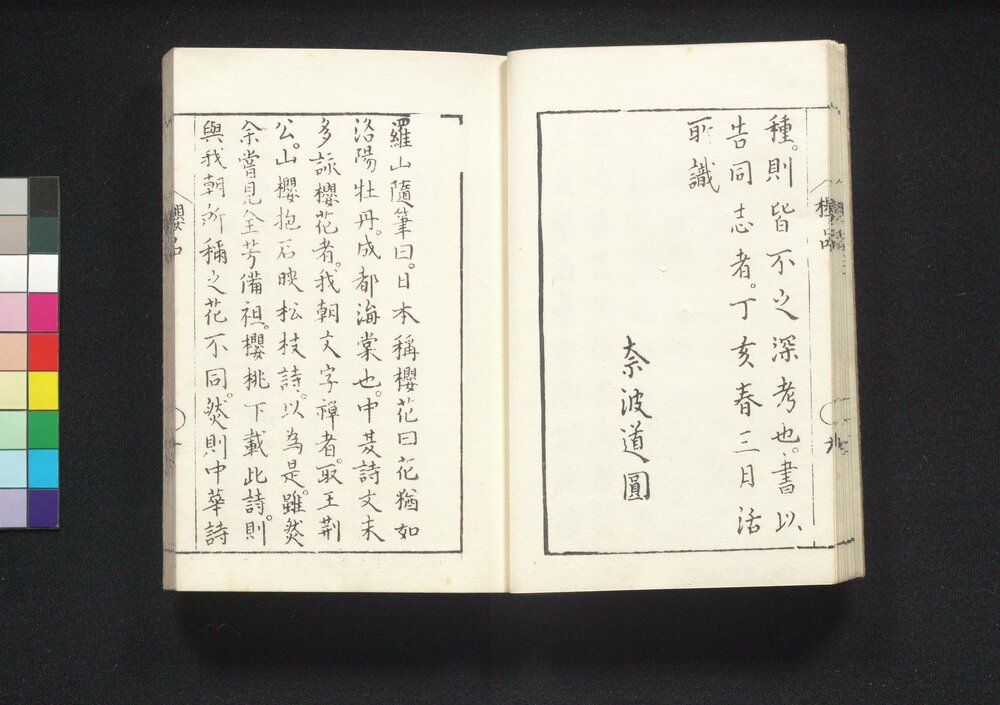 種。則皆不之深考也。書以
告同志者。丁亥春三日活
所識
奈波道圓
羅山隨筆曰。日本稱櫻花曰花猶如
洛陽牡丹。成都海棠也。中夏詩文未
多詠櫻花者。我朝文字禪者。取王荆
公。山櫻抱石映松枝詩。以為是。雖然
余嘗見全芳備祖。櫻桃下載此詩。則
與我朝所稱之花不同。然則中華詩
櫻品